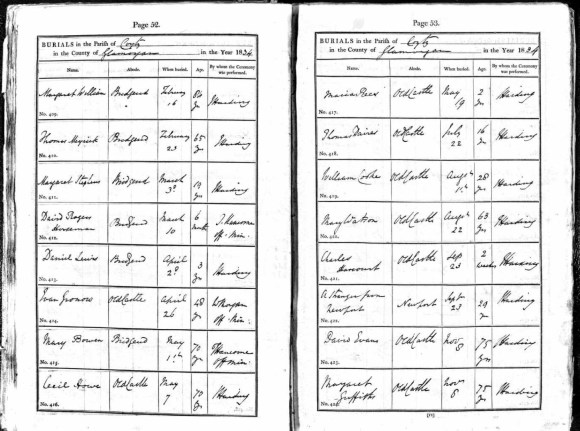 Page 52.
BURIALS in the Parish of Coyty
in the County of Glamorgan in the Year 1824
Name. Abode. When buried. Age. By whom the Ceremony was performed.
Margaret William Bridgend February 16 84 yrs J Harding
No. 409.
Thomas Meyrick Bridgend February 23 65 yrs Harding
No. 410.
Margaret Stephens Bridgend March 3d 19 yrs Harding
No. 411.
David Rogers Bridgend March 10 6 off. Min.
No. 412.
Daniel Lewis Bridgend April 2d 3 yrs Harding
No. 413.
Evan Gronow Old Castle April 26 48 yrs off. Min.
No. 414.
Mary Bowen Bridgend May 1st 70 yrs off Min.
No. 415.
Cecil Howe Old Castle May 7 70 yrs Harding
No. 416.
Page 53.
BURIALS in the Parish of Coyty
in the County of Glamorgan in the Year 1824
Name. Abode. When buried. Age. By whom the Ceremony was performed.
Maria Rees Old Castle May 19 2 yrs Harding
No. 417.
Thomas Old Castle July 22 16 yrs Harding
No. 418.
William Cooke Old Castle Augst 28 yrs Harding
No. 419.
Mary Watson Old Castle Augst 22 63 yrs Harding
No. 420.
Charles Harcourt Old Castle Sept 23 2 weeks Harding
No. 421.
A Stranger from Newport Newport Sept 23 29 yrs Harding
No. 422.
David Evans Old Castle Novr 5 75 yrs Harding
No. 423.
Margaret Griffiths Old Castle Novr 6 75 yrs Harding
No. 424.